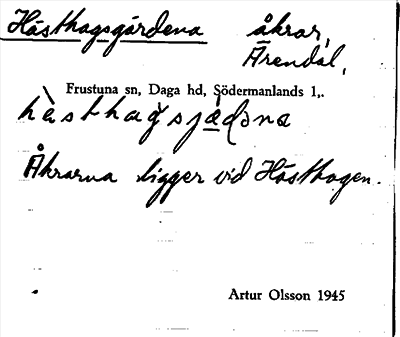 Hästhagsgärdena åkrar,
Ärendal,
Frustuna sn, Daga hd, Södermanlands l,.
Åkrarna ligger vid Hästhagen.
Artur Olsson 1945